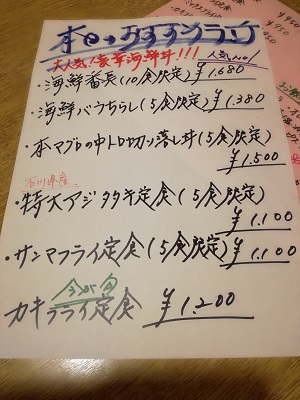 本日のおすすめランチ
大人気!豪華海鮮丼!!!
人気No1
・海鮮番長(10食限定) ¥1,680
・海鮮バラちらし(5食限定) ¥1,380
・本マグロの中トロ切り落し丼(5食限定)
¥1,500
石川県産
・特大アジタタキ定食(5食限定)
¥1,100
・サンマフライ定食(5食限定) ¥1,100
今が旬
カキフライ定食 ¥1,200